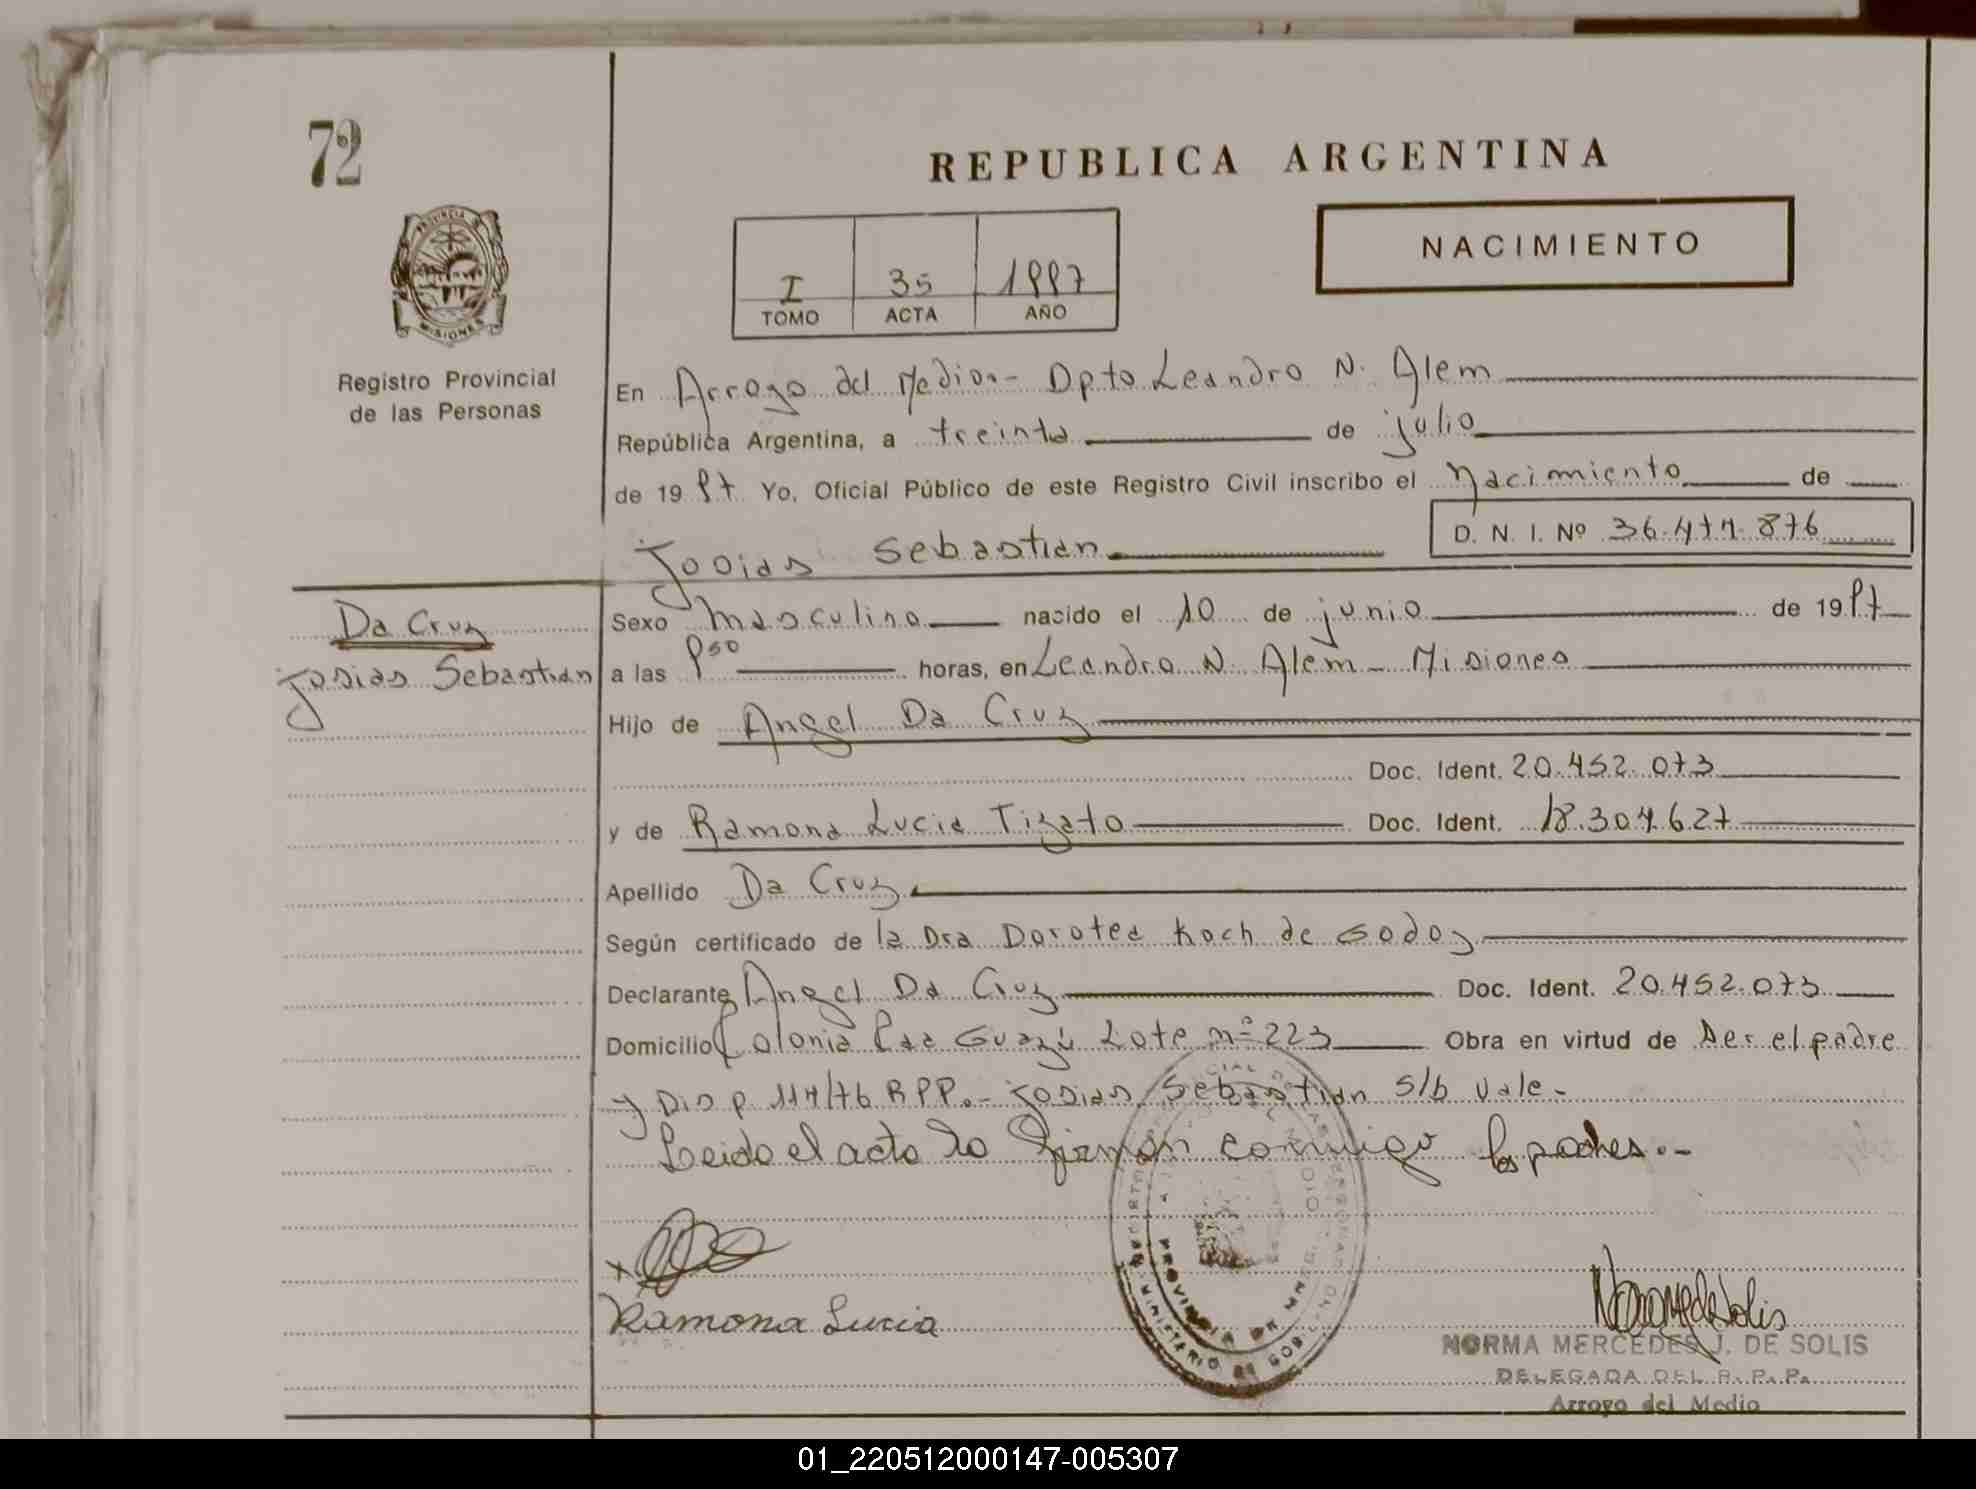 72
REPUBLICA ARGENTINA
NACIMIENTO
I 35 1997
TOMO ACTA AÑO
PROVINCIA DE
MISIONES
Registro Provincial
de las Personas
En Arroyo del Medio.- Dpto Leandro N. Alem
República Argentina, a treinta de julio
de 1997 Yo, Oficial Público de este Registro Civil inscribo el Nacimiento de
Josias Sebastian D. N. I. Nº 36.474.876
Da Cruz
Josias Sebastian
Sexo masculino nacido el 10 de junio de 1997
a las 9 50 horas, en Leandro N. Alem - Misiones
Hijo de Angel Da Cruz
Doc. Ident. 20.452.073
y de Ramona Lucia Tizato Doc. Ident. 18.304.627
Apellido Da Cruz
Según certificado de la Dra Dorotea Koch de Godoy
Declarante Angel Da Cruz Doc. Ident. 20.452.073
Domicilio Colonia Guazú Lote nº 223 Obra en virtud de ser el padre
y Disp. 114/76 RPP.- Josias Sebastian s/b vale-
Leido el acta la firman conmigo los padres.-
Ramona Lucia
PROVINCIA DE
MINISTERIO DE GOB.
NORMA MERCEDES J. DE SOLIS
DELEGADA DEL R. P. P.
Arroyo del Medio
01_220512000147-005307